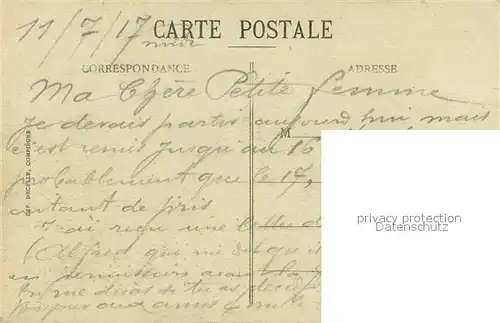 11/7/17
CARTE POSTALE
CORRESPONDANCE
ADRESSE
Ma Chère Petite femme
Je devais partir aujourd'hui mais
c'est remis jusqu'au 16
M
probablement que le 17,
autant de pris
J'ai reçu une lettre d
(Alfred qui me dit qu'il
en permission avant la
Tu me diras si tu as
Bonjour aux amis
privacy protection
Datenschutz